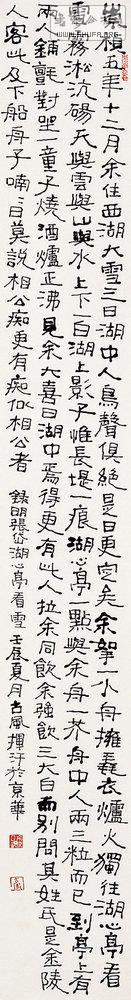 崇禎五年十二月余住西湖大雪三日湖中人鳥聲俱絕是日更定矣余拏一小舟擁毳衣爐火獨往湖心亭看
雪霧淞沆碭天與雲與山與水上下一白湖上影子惟長堤一痕湖心亭一點與余舟一芥舟中人兩三粒而已到亭上有
兩人鋪氈對坐一童子燒酒爐正沸見余大喜曰湖中焉得更有此人拉余同飲余強飲三大白而別問其姓氏是金陵
人客此及下船舟子喃〻曰莫說相公痴更有痴似相公者 錄明張岱湖心亭看雪 壬辰夏月古風揮汗於京華